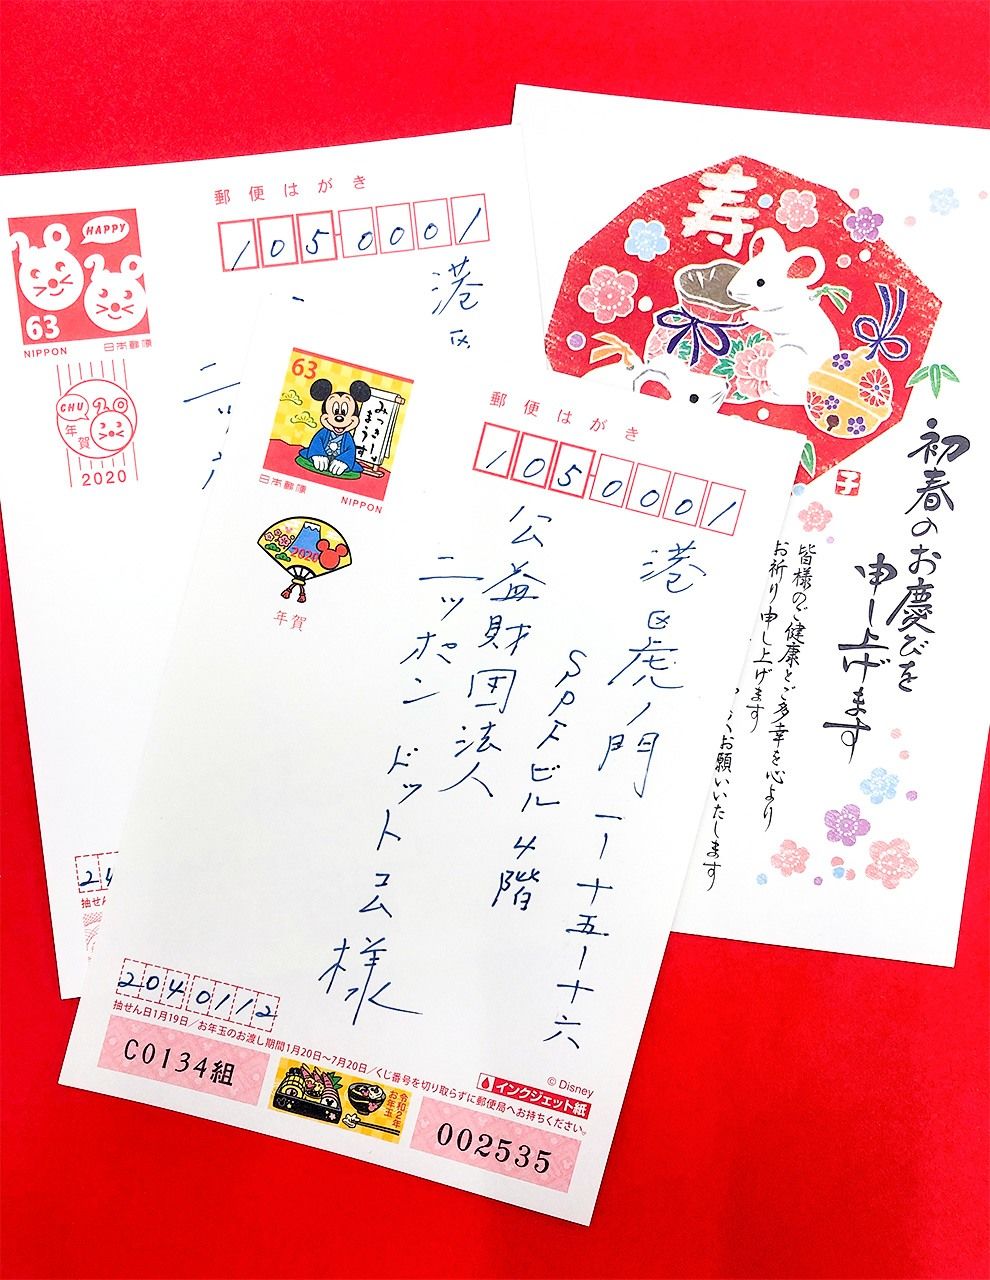 郵便はがき
1050001
港区
HAPPY
63
NIPPON 日本郵便
CHU
年賀
2020
ニッ
抽せん
寿
子
初春のお慶びを
申し上げます
皆様のご健康とご多幸を心より
お祈り申し上げます
お願いいたします
63
みっきー
まうす
日本郵便 NIPPON
2020
年賀
郵便はがき
1050001
港区虎ノ門一ー十五ー十六
SPFビル4階
公益財団法人
ニッポン ドットコム 様
2040112
抽せん日1月19日／お年玉のお渡し期間1月20日〜7月20日／くじ番号を切り取らずに郵便局へお持ちください。
© Disney
インクジェット紙
C0134組
令和2年
お年玉
002535